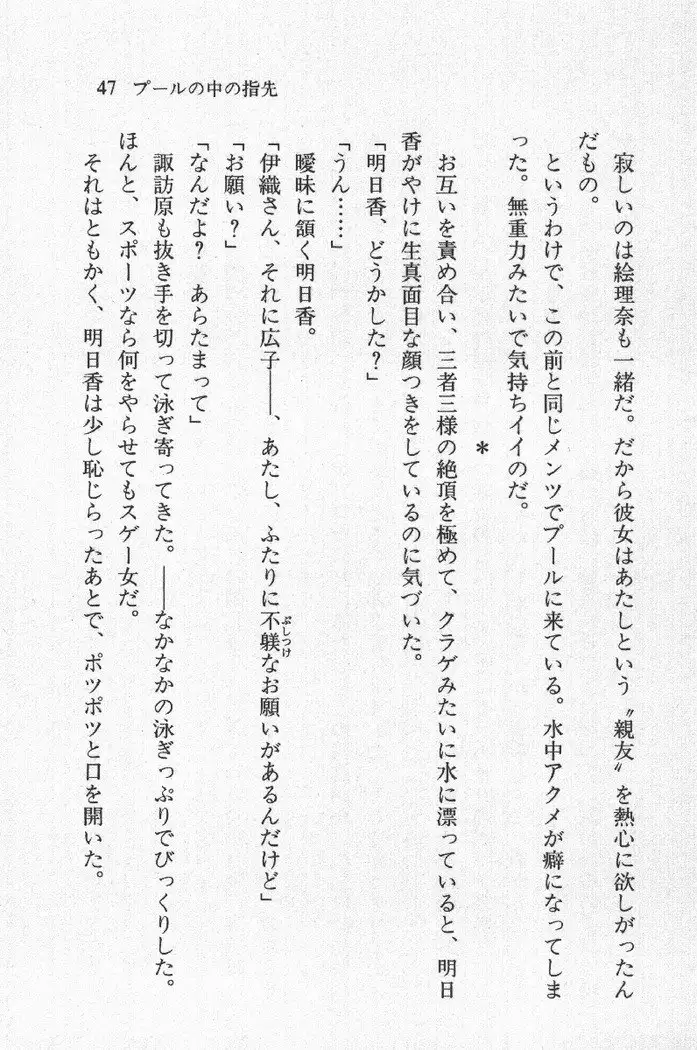 47 プールの中の指先
寂しいのは絵理奈も一緒だ。だから彼女はあたしという〝親友〟を熱心に欲しがったん
だもの。
というわけで、この前と同じメンツでプールに来ている。水中アクメが癖になってしま
った。無重力みたいで気持ちイイのだ。
＊
お互いを責め合い、三者三様の絶頂を極めて、クラゲみたいに水に漂っていると、明日
香がやけに生真面目な顔つきをしているのに気づいた。
「明日香、どうかした？」
「うん……」
曖昧に頷く明日香。
「伊織さん、それに広子――、あたし、ふたりに不躾なお願いがあるんだけど」
ぶしつけ
「お願い？」
「なんだよ？　あらたまって」
諏訪原も抜き手を切って泳ぎ寄ってきた。――なかなかの泳ぎっぷりでびっくりした。
ほんと、スポーツなら何をやらせてもスゲー女だ。
それはともかく、明日香は少し恥じらったあとで、ポツポツと口を開いた。